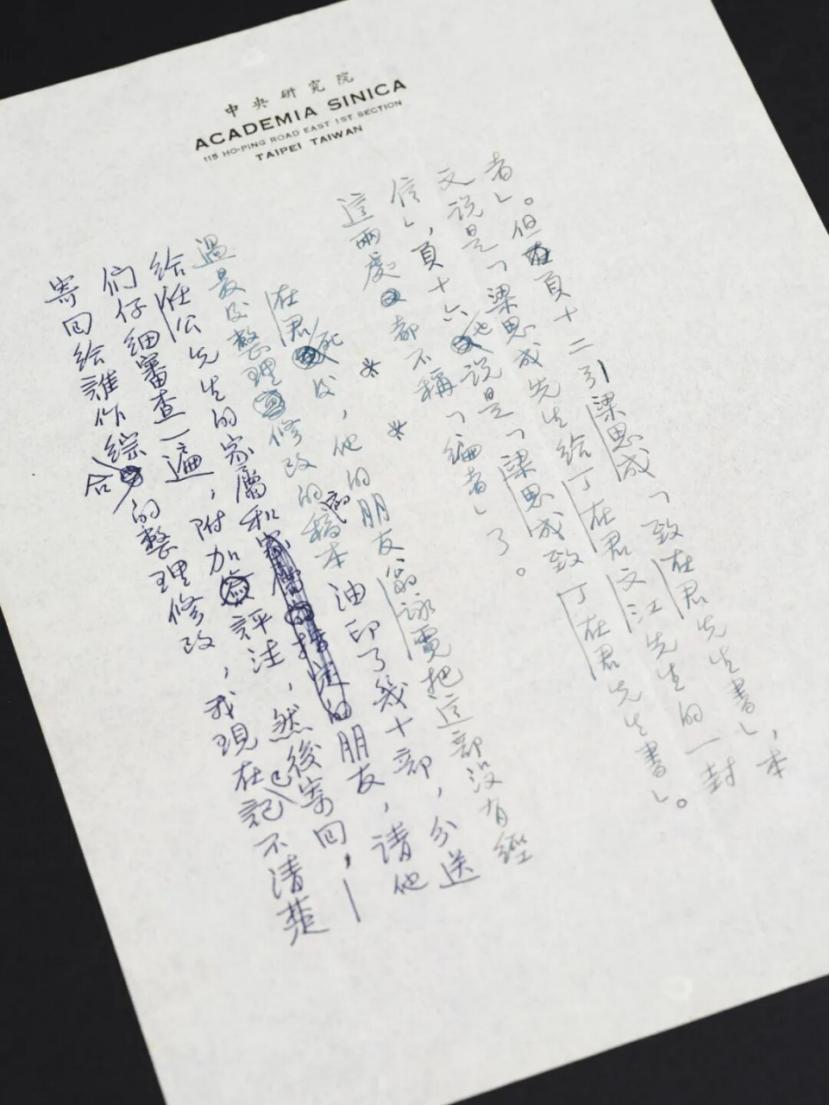 中央研究院
ACADEMIA SINICA
115 HO-PING ROAD EAST 1ST SECTION
TAIPEI TAIWAN
者」。但在頁十二引梁思成「致在君先生書」,本
文說是「梁思成先生給丁在君文江先生的一封
信」,頁十六也說是「梁思成致丁在君先生書」。
這兩處都不稱「編者」了。
* *
在君死後,他的朋友翁詠霓把這部沒有經
過最後整理修改的稿本油印了幾十部,分送
給任公先生的家屬和朋友,請他
們仔細審查一遍,附加評注,然後寄回,—
寄回給誰作綜合的整理修改,我現在已記不清楚